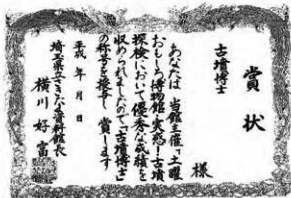 賞状
古墳博士
様
あなたは、当館主催「土曜
おもしろ博物館・実感!古墳
探検」において、優秀な成績を
収められましたので「古墳博士」
の称号を授与し、賞します
平成 年 月 日
埼玉県立さきたま資料館長
横川好富